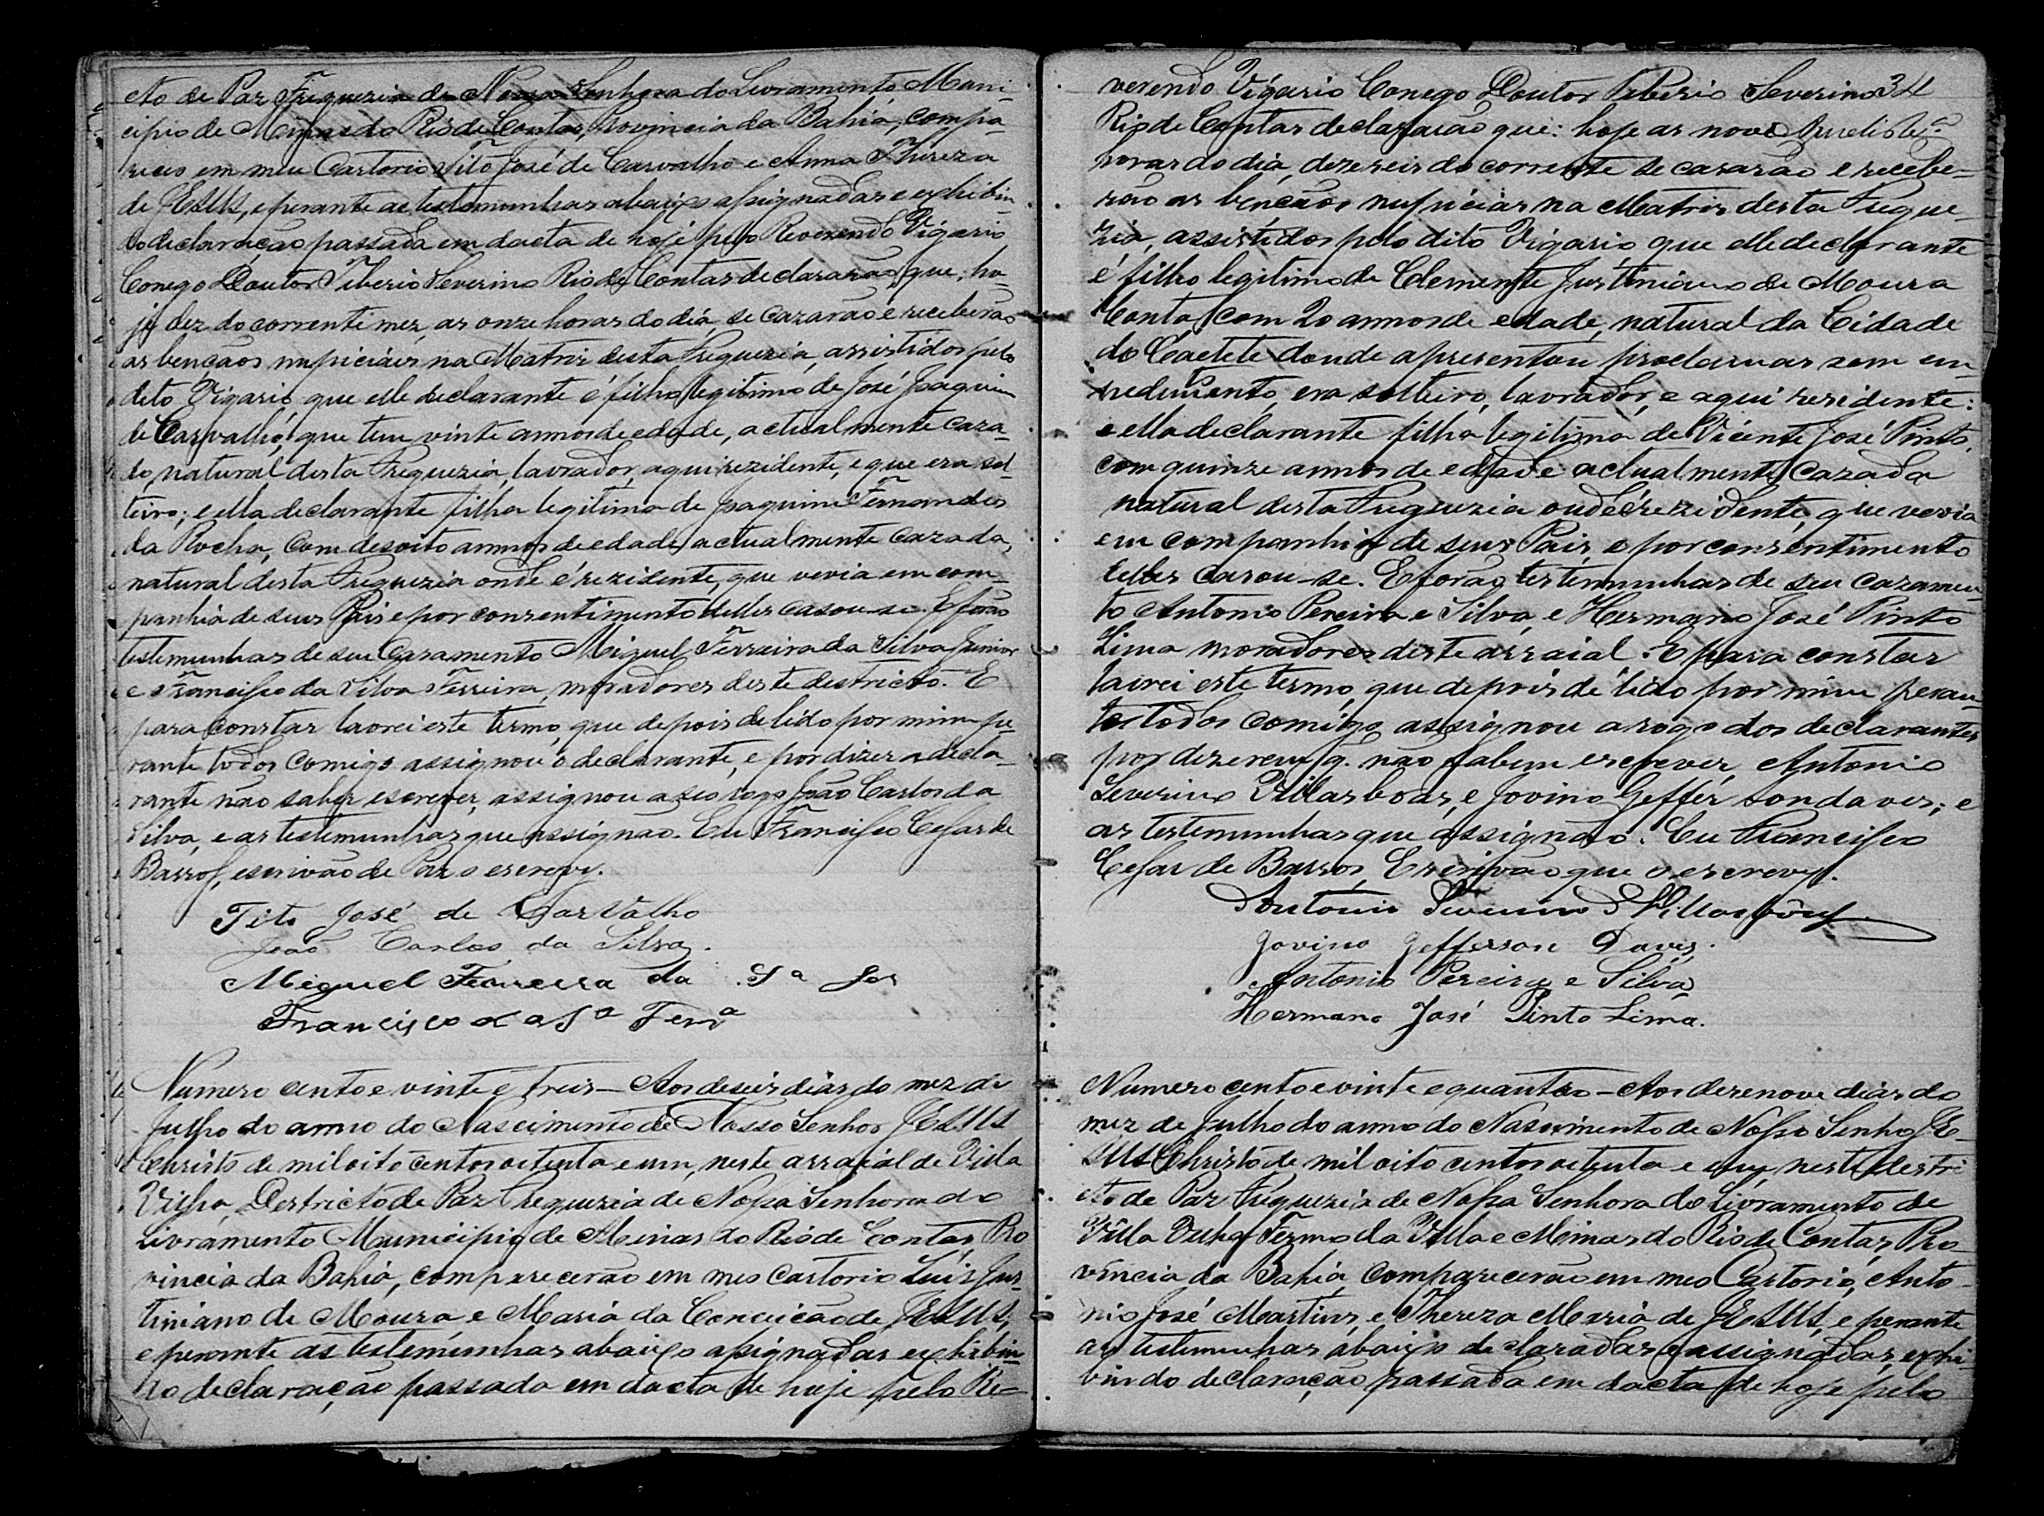 cto de Paz Freguezia de Nossa Senhora do Livramento Muni-
cipio de Minas do Rio de Contas, Provincia da Bahia, compa-
receo em meu Cartorio Tito José de Carvalho e Anna Thereza
de JESUS, e perante as testemunhas abaixo assignadas e exhibin
do declaração passada em dacta de hoje pelo Reverendo Vigario
Conego Doutor Tiberio Severino Rio de Contas declararão que; ho-
je dez do corrente mez, as onze horas do dia, se cazarão e receberão
as bençãos nupiciáes na Matriz desta Freguezia, assistidos pelo
dito Vigario que elle declarante é filho legitimo de José Joaquim
de Carvalho, que tem vinte annos de edade, actualmente caza-
do, natural desta Freguezia, lavrador, aqui rezidente, e que era sol-
teiro; e ella declarante filha legitima de Joaquim Fernandes
da Rocha, com desoito annos de edade, actualmente cazada,
natural desta Freguezia onde é rezidente, que vevia em com-
panhia de seus Pais e por consentimento delles casou-se. E forão
testemunhas de seu Cazamento Miguel Ferreira da Silva Junior
e Francisco da Silva Ferreira, moradores deste destricto. E
para constar lavrei este termo, que depois de lido por mim pe-
rante todos comigo assignou o declarante, e por dizer a decla-
rante não saber escrever, assignou a seo rogo João Carlos da
Silva, e as testemunhas que assignão. Eu Francisco Cesar de
Barros, escrivão de Paz o escrevy.
Tito José de Carvalho
João Carlos da Silva.
Miguel Ferreira da Sª Jor
Francisco da Sª Ferrª
Numero cento e vinte e treis - Aos deseis dias do mez de
Julho do anno do Nascimento de Nosso Senhor JESUS
Christo de mil oito centos oitenta e um, neste arraial de Villa
Velha, Destricto de Paz Freguezia de Nossa Senhora do
Livramento Municipio de Minas do Rio de Contas, Pro
vincia da Bahia, comparecerão em meo Cartorio Luis Jus-
tiniano de Moura e Maria da Conceicão de JESUS;
e perante as testemunhas abaixo assignadas exhibin-
do declaração passada em dacta de hoje pelo Re-
verendo Vigario Conego Doutor Tiberio Severino 34
Rio de Contas declararão que: hoje as nove
horas do dia, dezeseis do corrente se cazarão e recebe-
rão as bencãos nupiciáes na Matriz desta Fregue-
zia, assistidos pelo dito Vigario, que elle declarante
é filho legitimo de Clemente Justiniano de Moura
com 20 annos de edade, natural da Cidade
do Caeteté donde apresentou proclamas sem em-
pedimento, era solteiro, lavrador, e aqui residente:
e ella declarante filha legitima de Vicente José Pinto,
com quinze annos de edade actualmente Cazada
natural desta Freguezia onde é rezidente, que vevia
em companhia de seus Pais, e por consentimento
delles casou-se. E forão testemunhas de seu cazamen
to Antonio Pereira e Silva, e Hermano José Pinto
Lima moradores deste arraial. E para constar
lavrei este termo, que depois de lido por mim peran-
te todos comigo assignou a rogo dos declarantes
por dizerem q. não sabem escrever, Antonio
Severino Villasboas, e Jovino Geffer son daves; e
as testemunhas que assignão. Eu Francisco
Cesar de Barros, Escrivão que o escrevy.
Antonio Severino Villasbôas
Jovino Jefferson Daves.
Antonio Pereira e Silva
Hermano José Pinto Lima.
Numero cento e vinte e quantro - Aos dezenove dias do
mez de Julho do anno do Nascimento de Nosso Senhor JE-
SUS Christo de mil oito centos oitenta e um, neste destri
cto de Paz Freguezia de Nossa Senhora do Livramento de
Villa Velha Termo da Villa e Minas do Rio de Contas, Pro-
víncia da Bahia, comparecerão em meo Cartorio, Anto-
nio José Martins, e Thereza Maria de JESUS, e perante
as testemunhas abaixo declaradas e assignadas, exhi
bindo declaração passada em dacta de hoje pelo